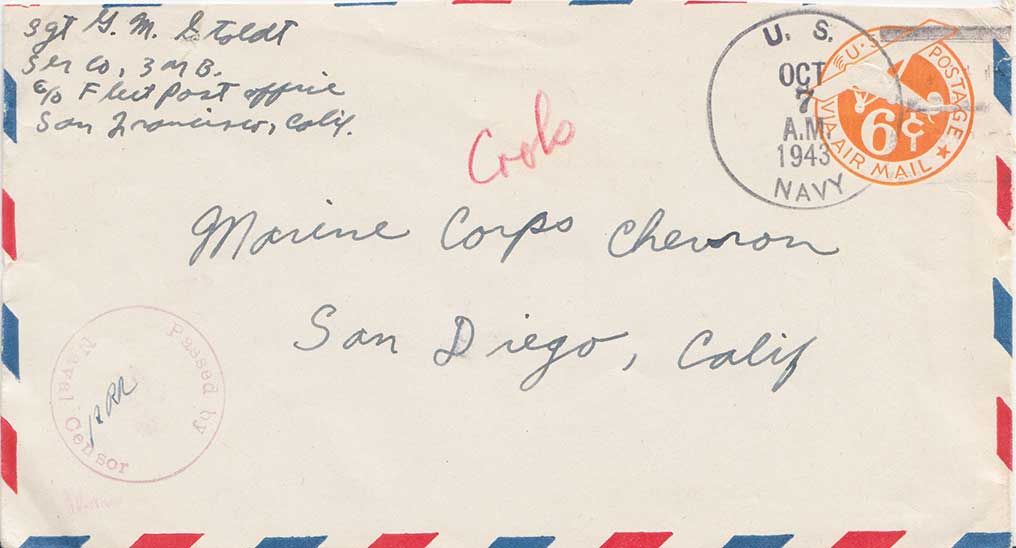 Sgt G. M. Stoldt
Ser Co, 3 M B.
c/o Fleet Post Office
San Francisco, Calif.
U. S.
OCT
7
A.M.
1943
NAVY
U.S. POSTAGE
6¢
VIA AIR MAIL
Marine Corps Chevron
San Diego, Calif
Passed by
Naval Censor